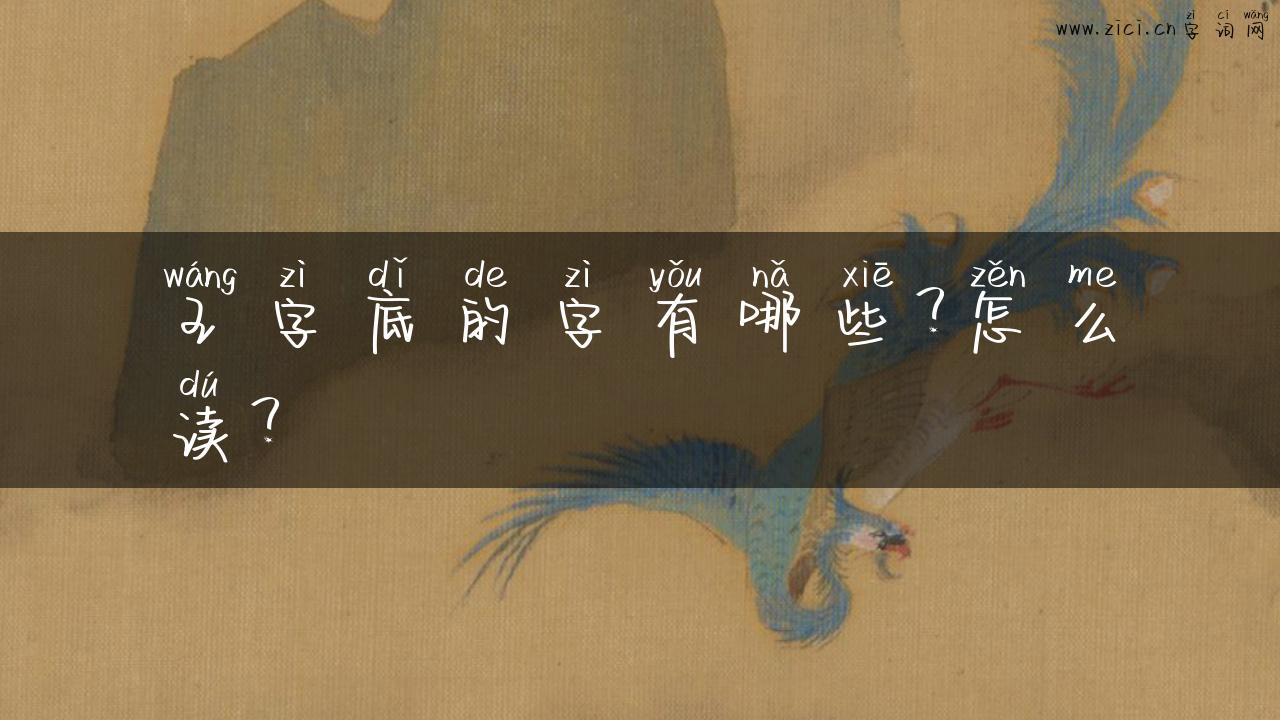 zì cí wǎng
www.zici.cn字词网
wáng zì dǐ de zì yǒu nǎ xiē zěn me
王字底的字有哪些？怎么
dú
读？